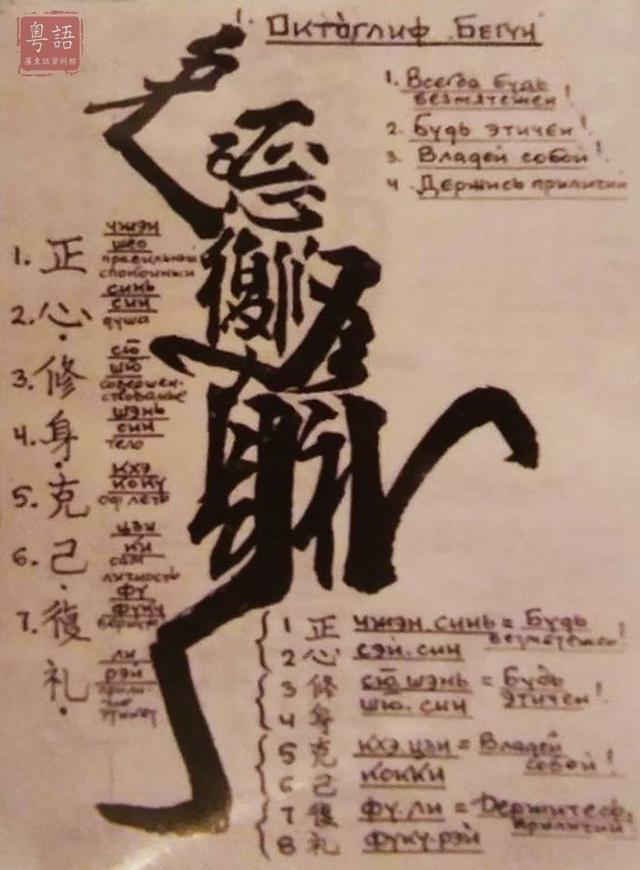 粤語
廣東話資料館
! Октоглиф Бегун
1. Всегда будь
безмятежен!
2. Будь этичен!
3. Владей собой!
4 Держись приличий
1. 正 чжэн
сёо
правильный
спокойный
2. 心 синь
син
душа
3. 修 сю
шю
совершен-
ствованье
4. 身 шэнь
син
тело
5. 克 кхэ
коку
одолеть
6. 己 цзи
ки
сам
личность
7. 復 фу
фуку
礼 ли
рэй
этикет
1 正 чжэн.синь = Будь
безмятежен!
2 心 сэй.син
3 修 сю.шэнь = Будь
этичен!
4 身 шю.син
5 克 кхэ.цзи = Владей
собой!
6 己 кокки
7 復 фу.ли = Держитесь
приличий
8 礼 фуку.рэй